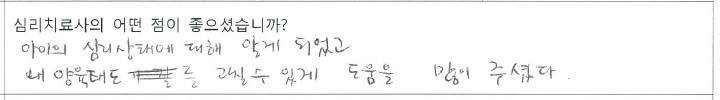 심리치료사의 어떤 점이 좋으셨습니까?
아이의 심리상태에 대해 알게 되었고
내 양육태도를 고칠 수 있게 도움을 많이 주셨다.